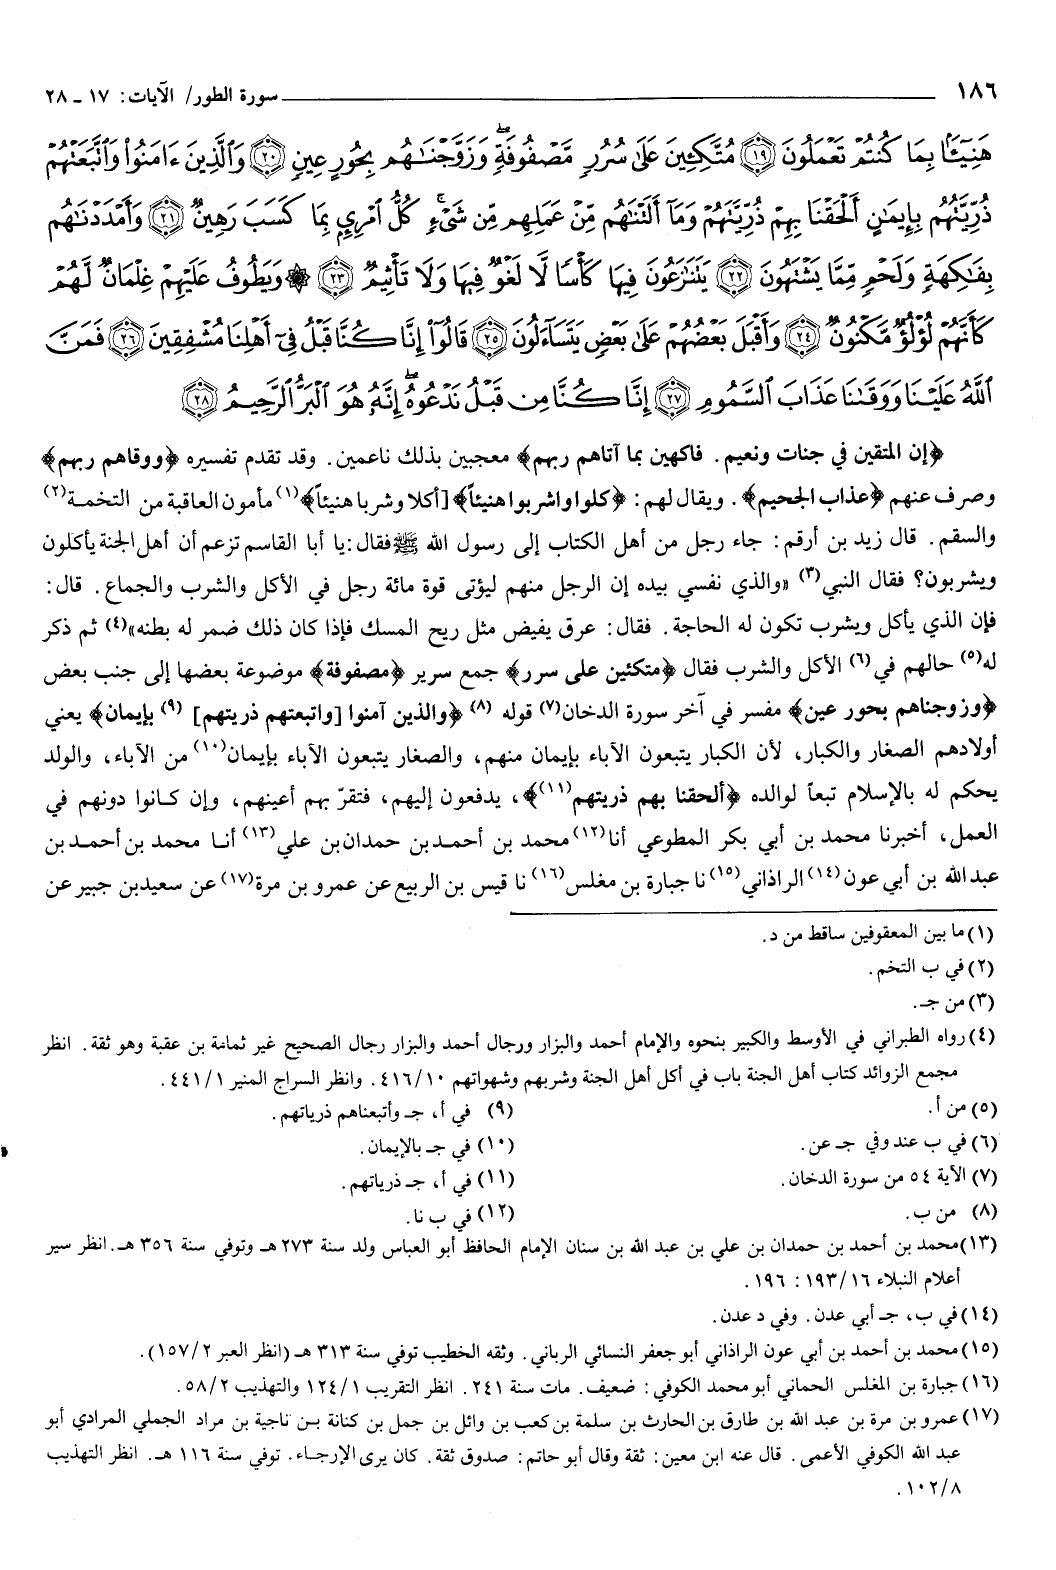 ١٨٦ سورة الطور/ الآيات: ١٧ ـ ٢٨
هَنِيٓـَٔۢا بِمَا كُنتُمْ تَعْمَلُونَ ﴿١٩﴾ مُتَّكِـِٔينَ عَلَىٰ سُرُرٍ مَّصْفُوفَةٍ ۖ وَزَوَّجْنَـٰهُم بِحُورٍ عِينٍ ﴿٢٠﴾ وَٱلَّذِينَ ءَامَنُوا۟ وَٱتَّبَعَتْهُمْ
ذُرِّيَّتُهُم بِإِيمَـٰنٍ أَلْحَقْنَا بِهِمْ ذُرِّيَّتَهُمْ وَمَآ أَلَتْنَـٰهُم مِّنْ عَمَلِهِم مِّن شَىْءٍ ۚ كُلُّ ٱمْرِئٍۭ بِمَا كَسَبَ رَهِينٌ ﴿٢١﴾ وَأَمْدَدْنَـٰهُم
بِفَـٰكِهَةٍ وَلَحْمٍ مِّمَّا يَشْتَهُونَ ﴿٢٢﴾ يَتَنَـٰزَعُونَ فِيهَا كَأْسًا لَّا لَغْوٌ فِيهَا وَلَا تَأْثِيمٌ ﴿٢٣﴾ ۞ وَيَطُوفُ عَلَيْهِمْ غِلْمَانٌ لَّهُمْ
كَأَنَّهُمْ لُؤْلُؤٌ مَّكْنُونٌ ﴿٢٤﴾ وَأَقْبَلَ بَعْضُهُمْ عَلَىٰ بَعْضٍ يَتَسَآءَلُونَ ﴿٢٥﴾ قَالُوٓا۟ إِنَّا كُنَّا قَبْلُ فِىٓ أَهْلِنَا مُشْفِقِينَ ﴿٢٦﴾ فَمَنَّ
ٱللَّهُ عَلَيْنَا وَوَقَىٰنَا عَذَابَ ٱلسَّمُومِ ﴿٢٧﴾ إِنَّا كُنَّا مِن قَبْلُ نَدْعُوهُ ۖ إِنَّهُۥ هُوَ ٱلْبَرُّ ٱلرَّحِيمُ ﴿٢٨﴾
﴿إن المتقين في جنات ونعيم. فاكهين بما آتاهم ربهم﴾ معجبين بذلك ناعمين. وقد تقدم تفسيره ﴿ووقاهم ربهم﴾
وصرف عنهم ﴿عذاب الجحيم﴾. ويقال لهم: ﴿كلوا واشربوا هنيئاً﴾ [أكلا وشربا هنيئاً]﴾(١) مأمون العاقبة من التخمـة(٢)
والسقم. قال زيد بن أرقم: جاء رجل من أهل الكتاب إلى رسول الله ﷺ فقال: يا أبا القاسم تزعم أن أهل الجنة يأكلون
ويشربون؟ فقال النبي(٣) «والذي نفسي بيده إن الرجل منهم ليؤتى قوة مائة رجل في الأكل والشرب والجماع. قال:
فإن الذي يأكل ويشرب تكون له الحاجة. فقال: عرق يفيض مثل ريح المسك فإذا كان ذلك ضمر له بطنه»(٤) ثم ذكر
له(٥) حالهم في(٦) الأكل والشرب فقال ﴿متكئين على سرر﴾ جمع سرير ﴿مصفوفة﴾ موضوعة بعضها إلى جنب بعض
﴿وزوجناهم بحور عين﴾ مفسر في آخر سورة الدخان(٧) قوله (٨) ﴿والذين آمنوا [واتبعتهم ذريتهم] (٩) بإيمان﴾ يعني
أولادهم الصغار والكبار، لأن الكبار يتبعون الآباء بإيمان منهم، والصغار يتبعون الآباء بإيمان(١٠) من الآباء، والولد
يحكم له بالإسلام تبعاً لوالده ﴿ألحقنا بهم ذريتهم(١١)﴾، يدفعون إليهم، فتقرّ بهم أعينهم، وإن كـانوا دونهم في
العمل، أخبرنا محمد بن أبي بكر المطوعي أنا(١٢) محمد بن أحمـد بن حمدان بن علي(١٣) أنـا محمد بن أحمـد بن
عبد الله بن أبي عون(١٤) الراذاني(١٥) نا جبارة بن مغلس(١٦) نا قيس بن الربيع عن عمرو بن مرة(١٧) عن سعيد بن جبير عن
(١) ما بين المعقوفين ساقط من د.
(٢) في ب التخم.
(٣) من جـ.
(٤) رواه الطبراني في الأوسط والكبير بنحوه والإمام أحمد والبزار ورجال أحمد والبزار رجال الصحيح غير ثمامة بن عقبة وهو ثقة. انظر
مجمع الزوائد كتاب أهل الجنة باب في أكل أهل الجنة وشربهم وشهواتهم ٤١٦/١٠. وانظر السراج المنير ٤٤١/١.
(٥) من أ.
(٦) في ب عند وفي جـ عن.
(٧) الآية ٥٤ من سورة الدخان.
(٨) من ب.
(٩) في أ، جـ وأتبعناهم ذرياتهم.
(١٠) في جـ بالإيمان.
(١١) في أ، جـ ذرياتهم.
(١٢) في ب نا.
(١٣) محمد بن أحمد بن حمدان بن علي بن عبد الله بن سنان الإمام الحافظ أبو العباس ولد سنة ٢٧٣ هـ وتوفي سنة ٣٥٦ هـ. انظر سير
أعلام النبلاء ١٩٣/١٦ : ١٩٦.
(١٤) في ب، جـ أبي عدن. وفي د عدن.
(١٥) محمد بن أحمد بن أبي عون الراذاني أبو جعفر النسائي الرباني. وثقه الخطيب توفي سنة ٣١٣ هـ (انظر العبر ١٥٧/٢).
(١٦) جبارة بن المغلس الحماني أبو محمد الكوفي: ضعيف. مات سنة ٢٤١. انظر التقريب ١٢٤/١ والتهذيب ٥٨/٢.
(١٧) عمرو بن مرة بن عبد الله بن طارق بن الحارث بن سلمة بن كعب بن وائل بن جمل بن كنانة بـن ناجية بن مراد الجملي المرادي أبو
عبد الله الكوفي الأعمى. قال عنه ابن معين: ثقة وقال أبو حاتم: صدوق ثقة. كان يرى الإرجـاء. توفي سنة ١١٦ هـ. انظر التهذيب
١٠٢/٨.